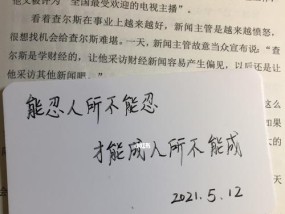 全国最受欢迎的电视主播
看着查尔斯在事业上越来越好，新闻主管是越来越愤怒，
很想找机会给查尔斯难堪。一天，新闻主管故意当众宣布：“查
尔斯是学财经的，让他采访财经新闻容易产生偏见，以后还是让
他采访其他新闻吧。”
能忍人所不能忍
才能成人所不能成
2021.5.12